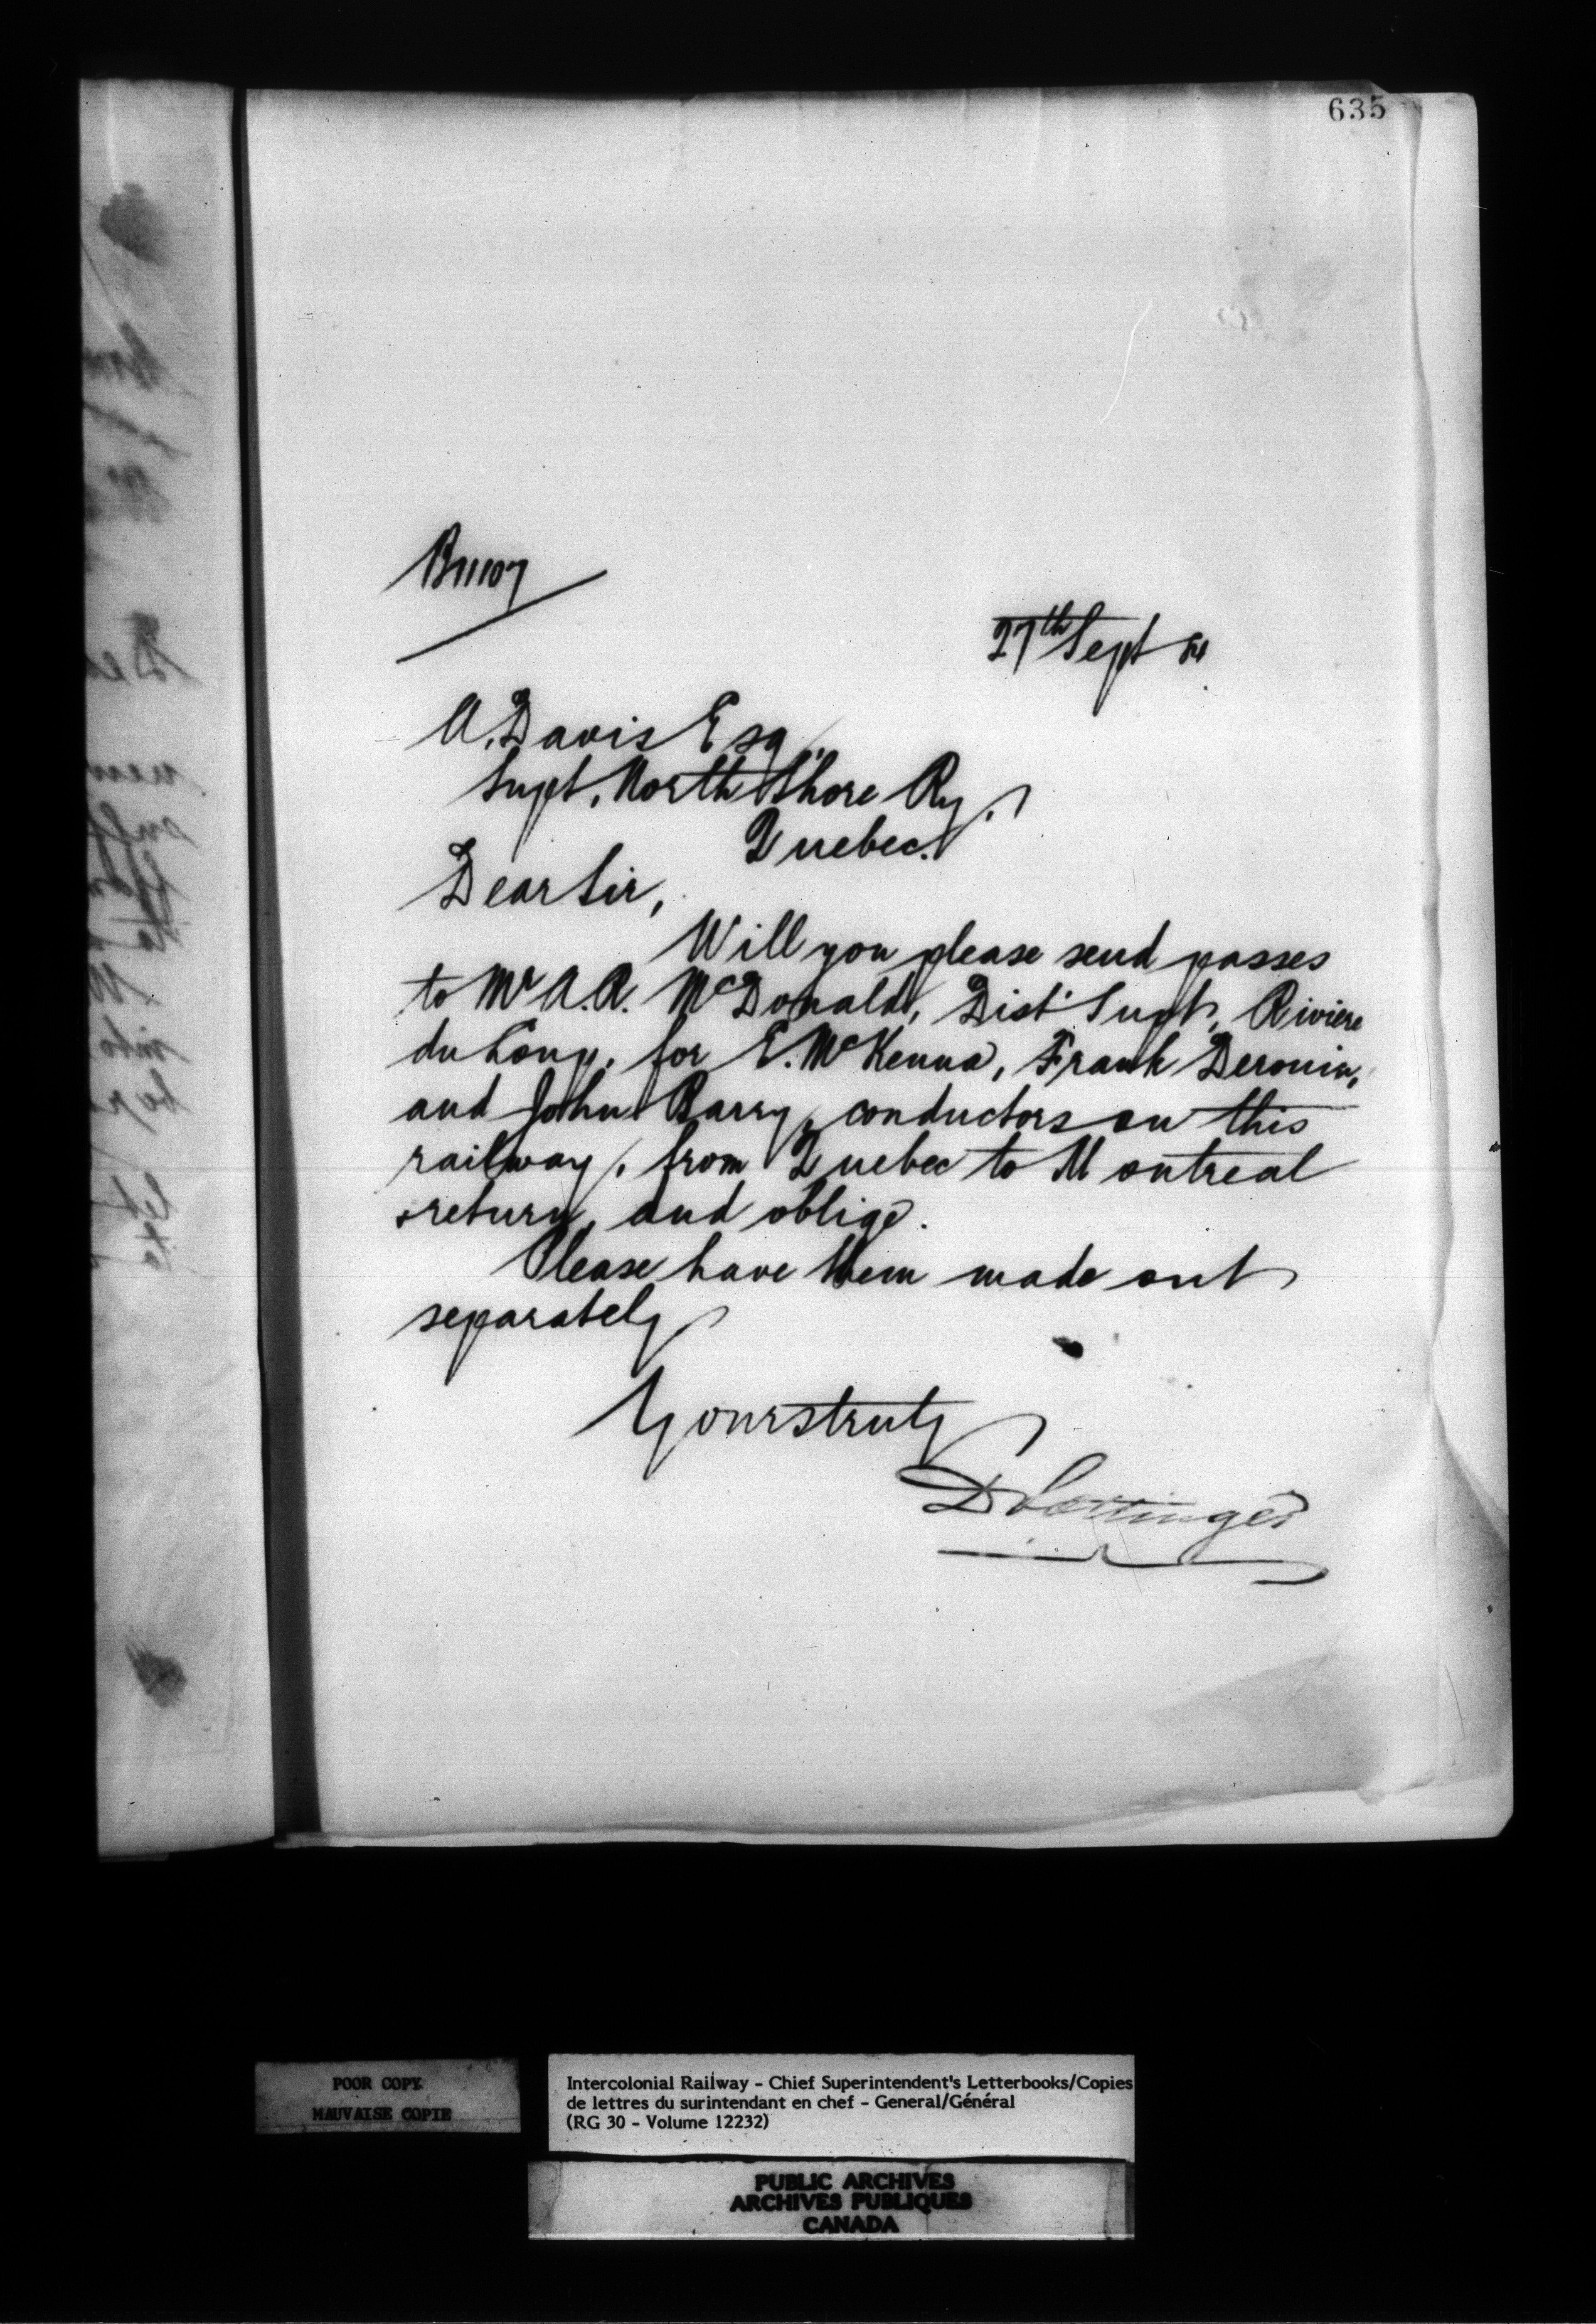 635
B11107
27th Sept 84
A. Davis Esq.
Supt. North Shore Ry.
Quebec.
Dear Sir,
Will you please send passes
to Mr A.R. McDonald, Dist. Supt, Riviere
du Loup, for E. McKenna, Frank Derouin,
and John Barry, conductors on this
railway, from Quebec to Montreal
& return, and oblige.
Please have them made out
separately
Yours truly
D Pottinger
POOR COPY
MAUVAISE COPIE
Intercolonial Railway - Chief Superintendent's Letterbooks/Copies
de lettres du surintendant en chef - General/Général
(RG 30 - Volume 12232)
PUBLIC ARCHIVES
ARCHIVES PUBLIQUES
CANADA